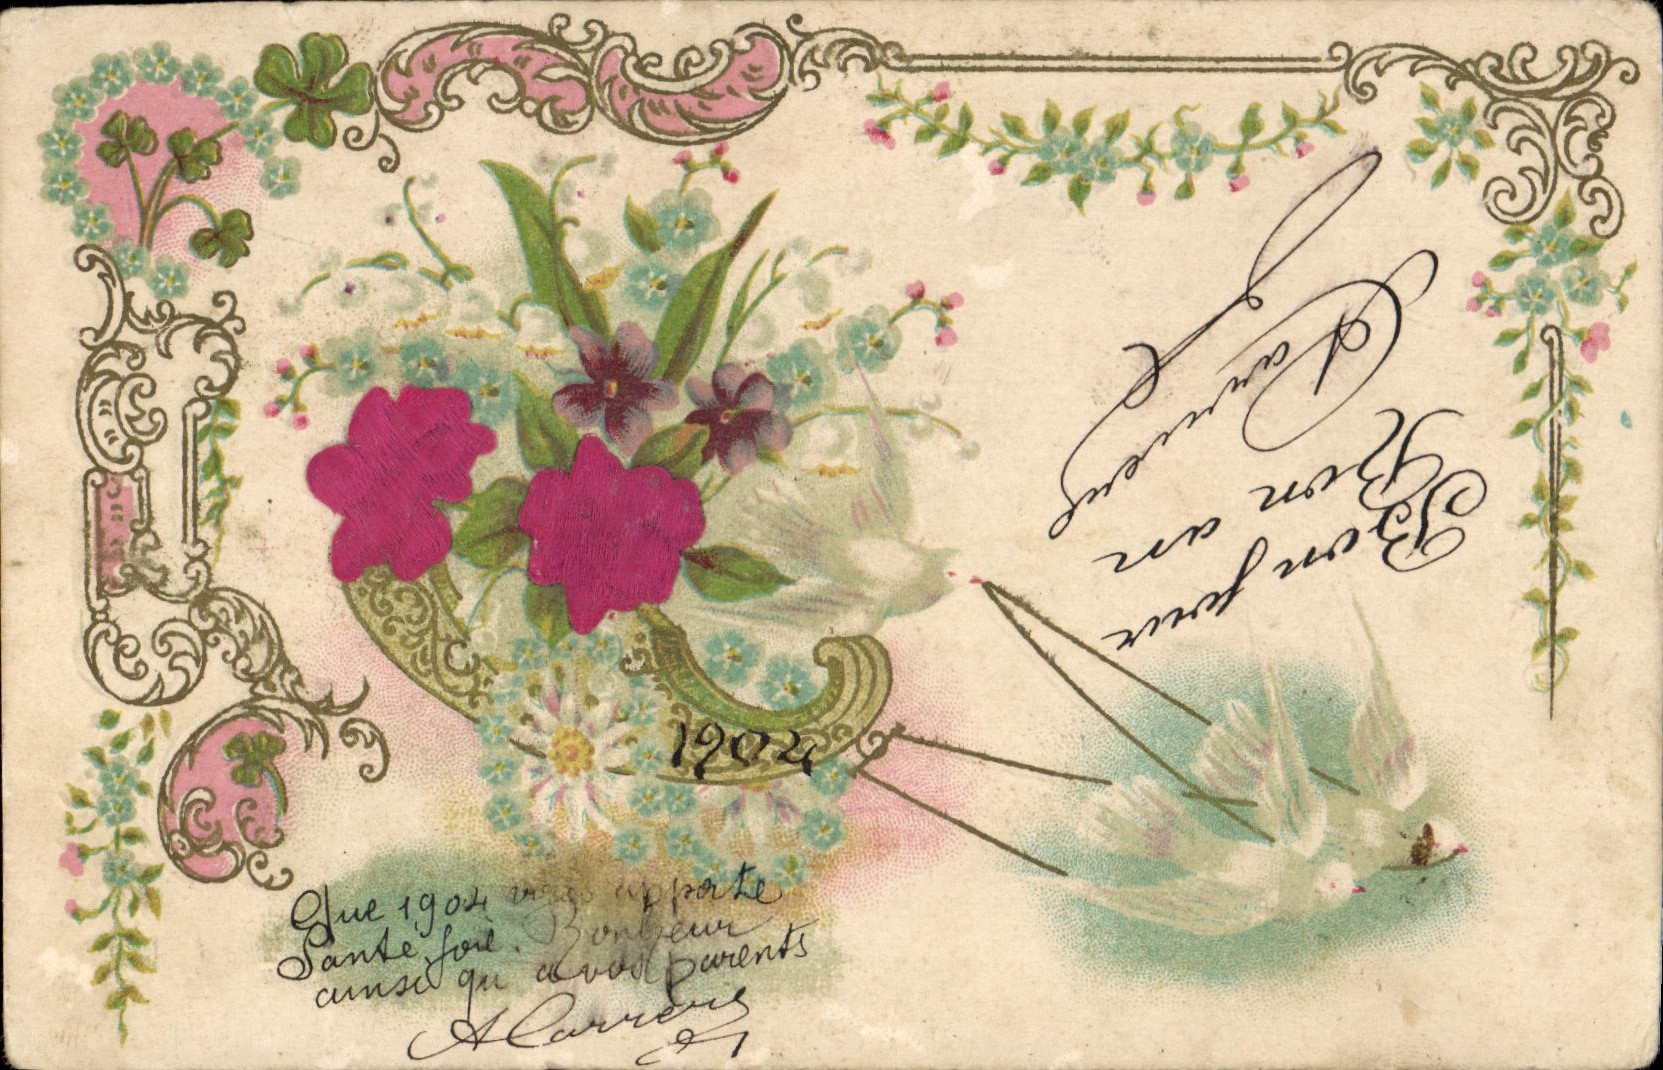 1904
Que 1904 vous apporte
Santé, joie. Bonheur
ainsi qu'a vos parents
A Carrère
Bon jour
Bon an